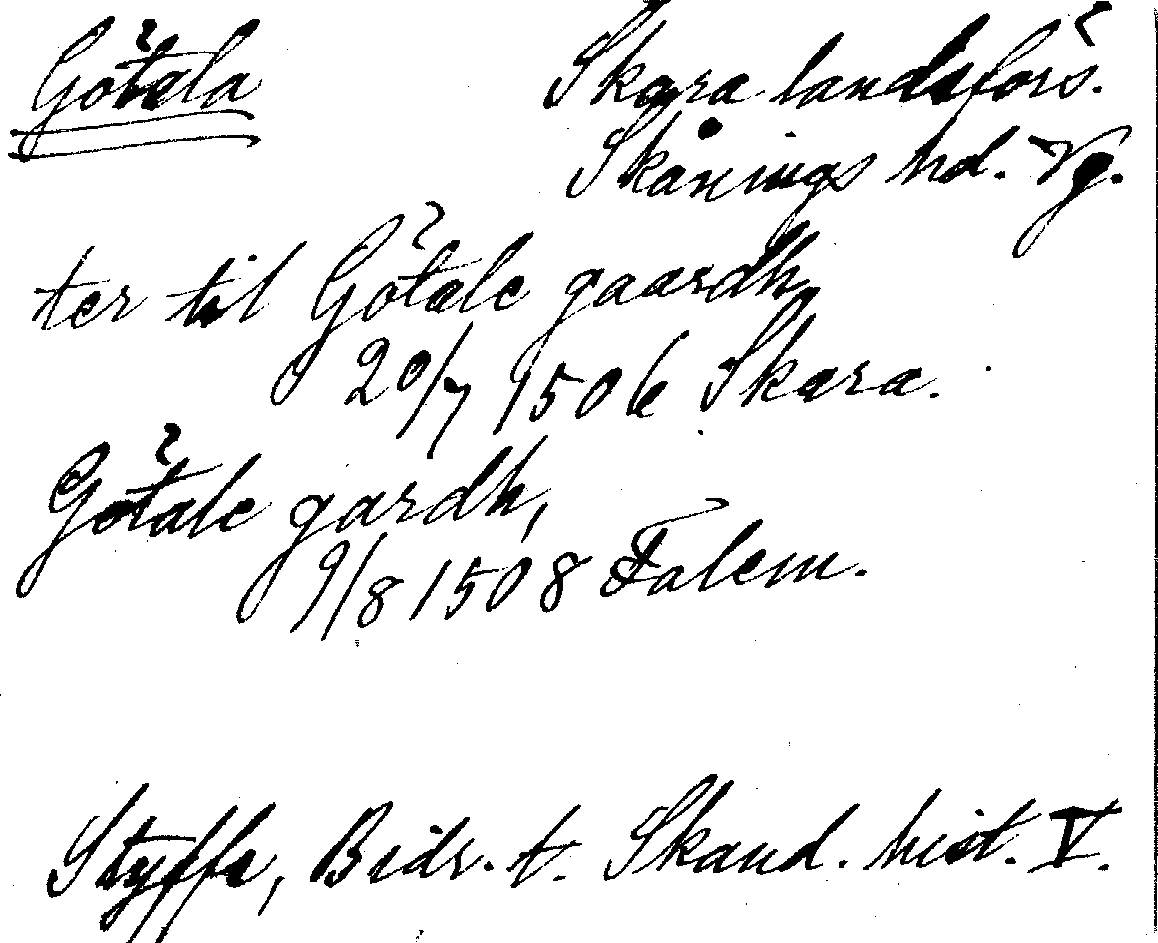 Götala
Skara landsförs.
Skånings hd. Vg.
ter til Götale gaardh,
20/7 1506 Skara.
Götale gardh,
9/8 1508 Falem.
Styffe, Bidr. t. Skand. hist. V.